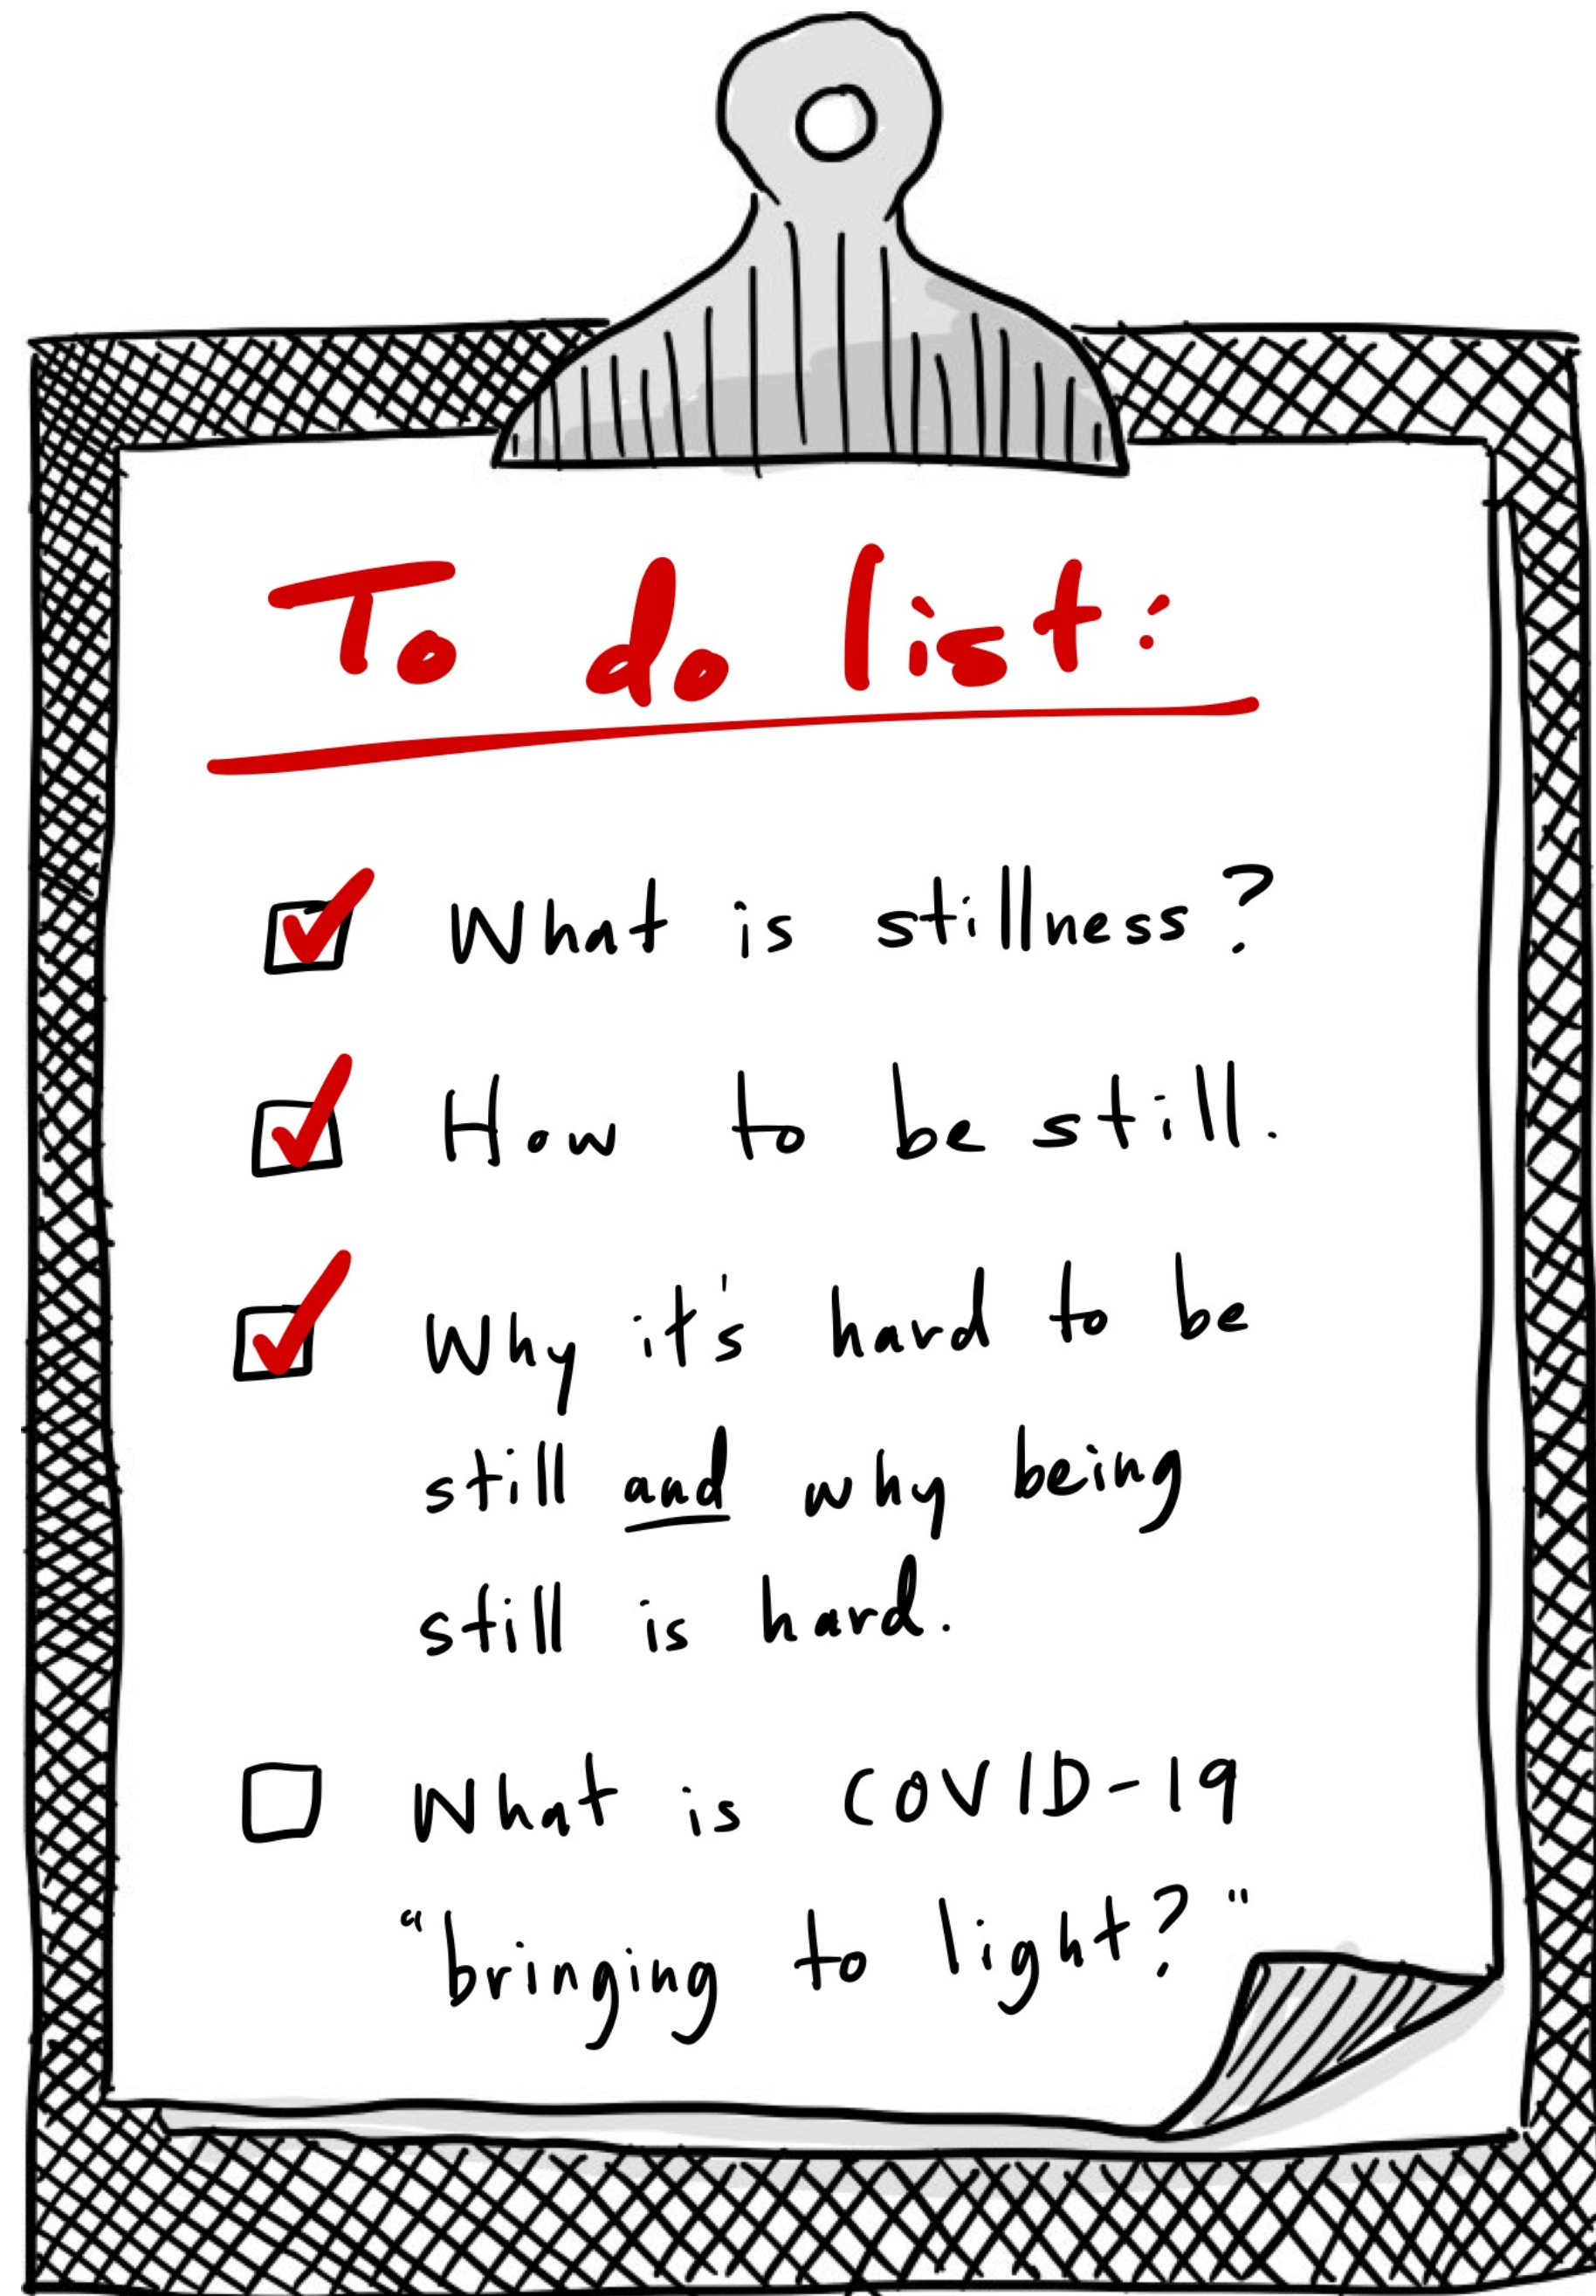 To do list:
What is stillness?
How to be still.
Why it's hard to be
still and why being
still is hard.
What is COVID-19
"bringing to light?"